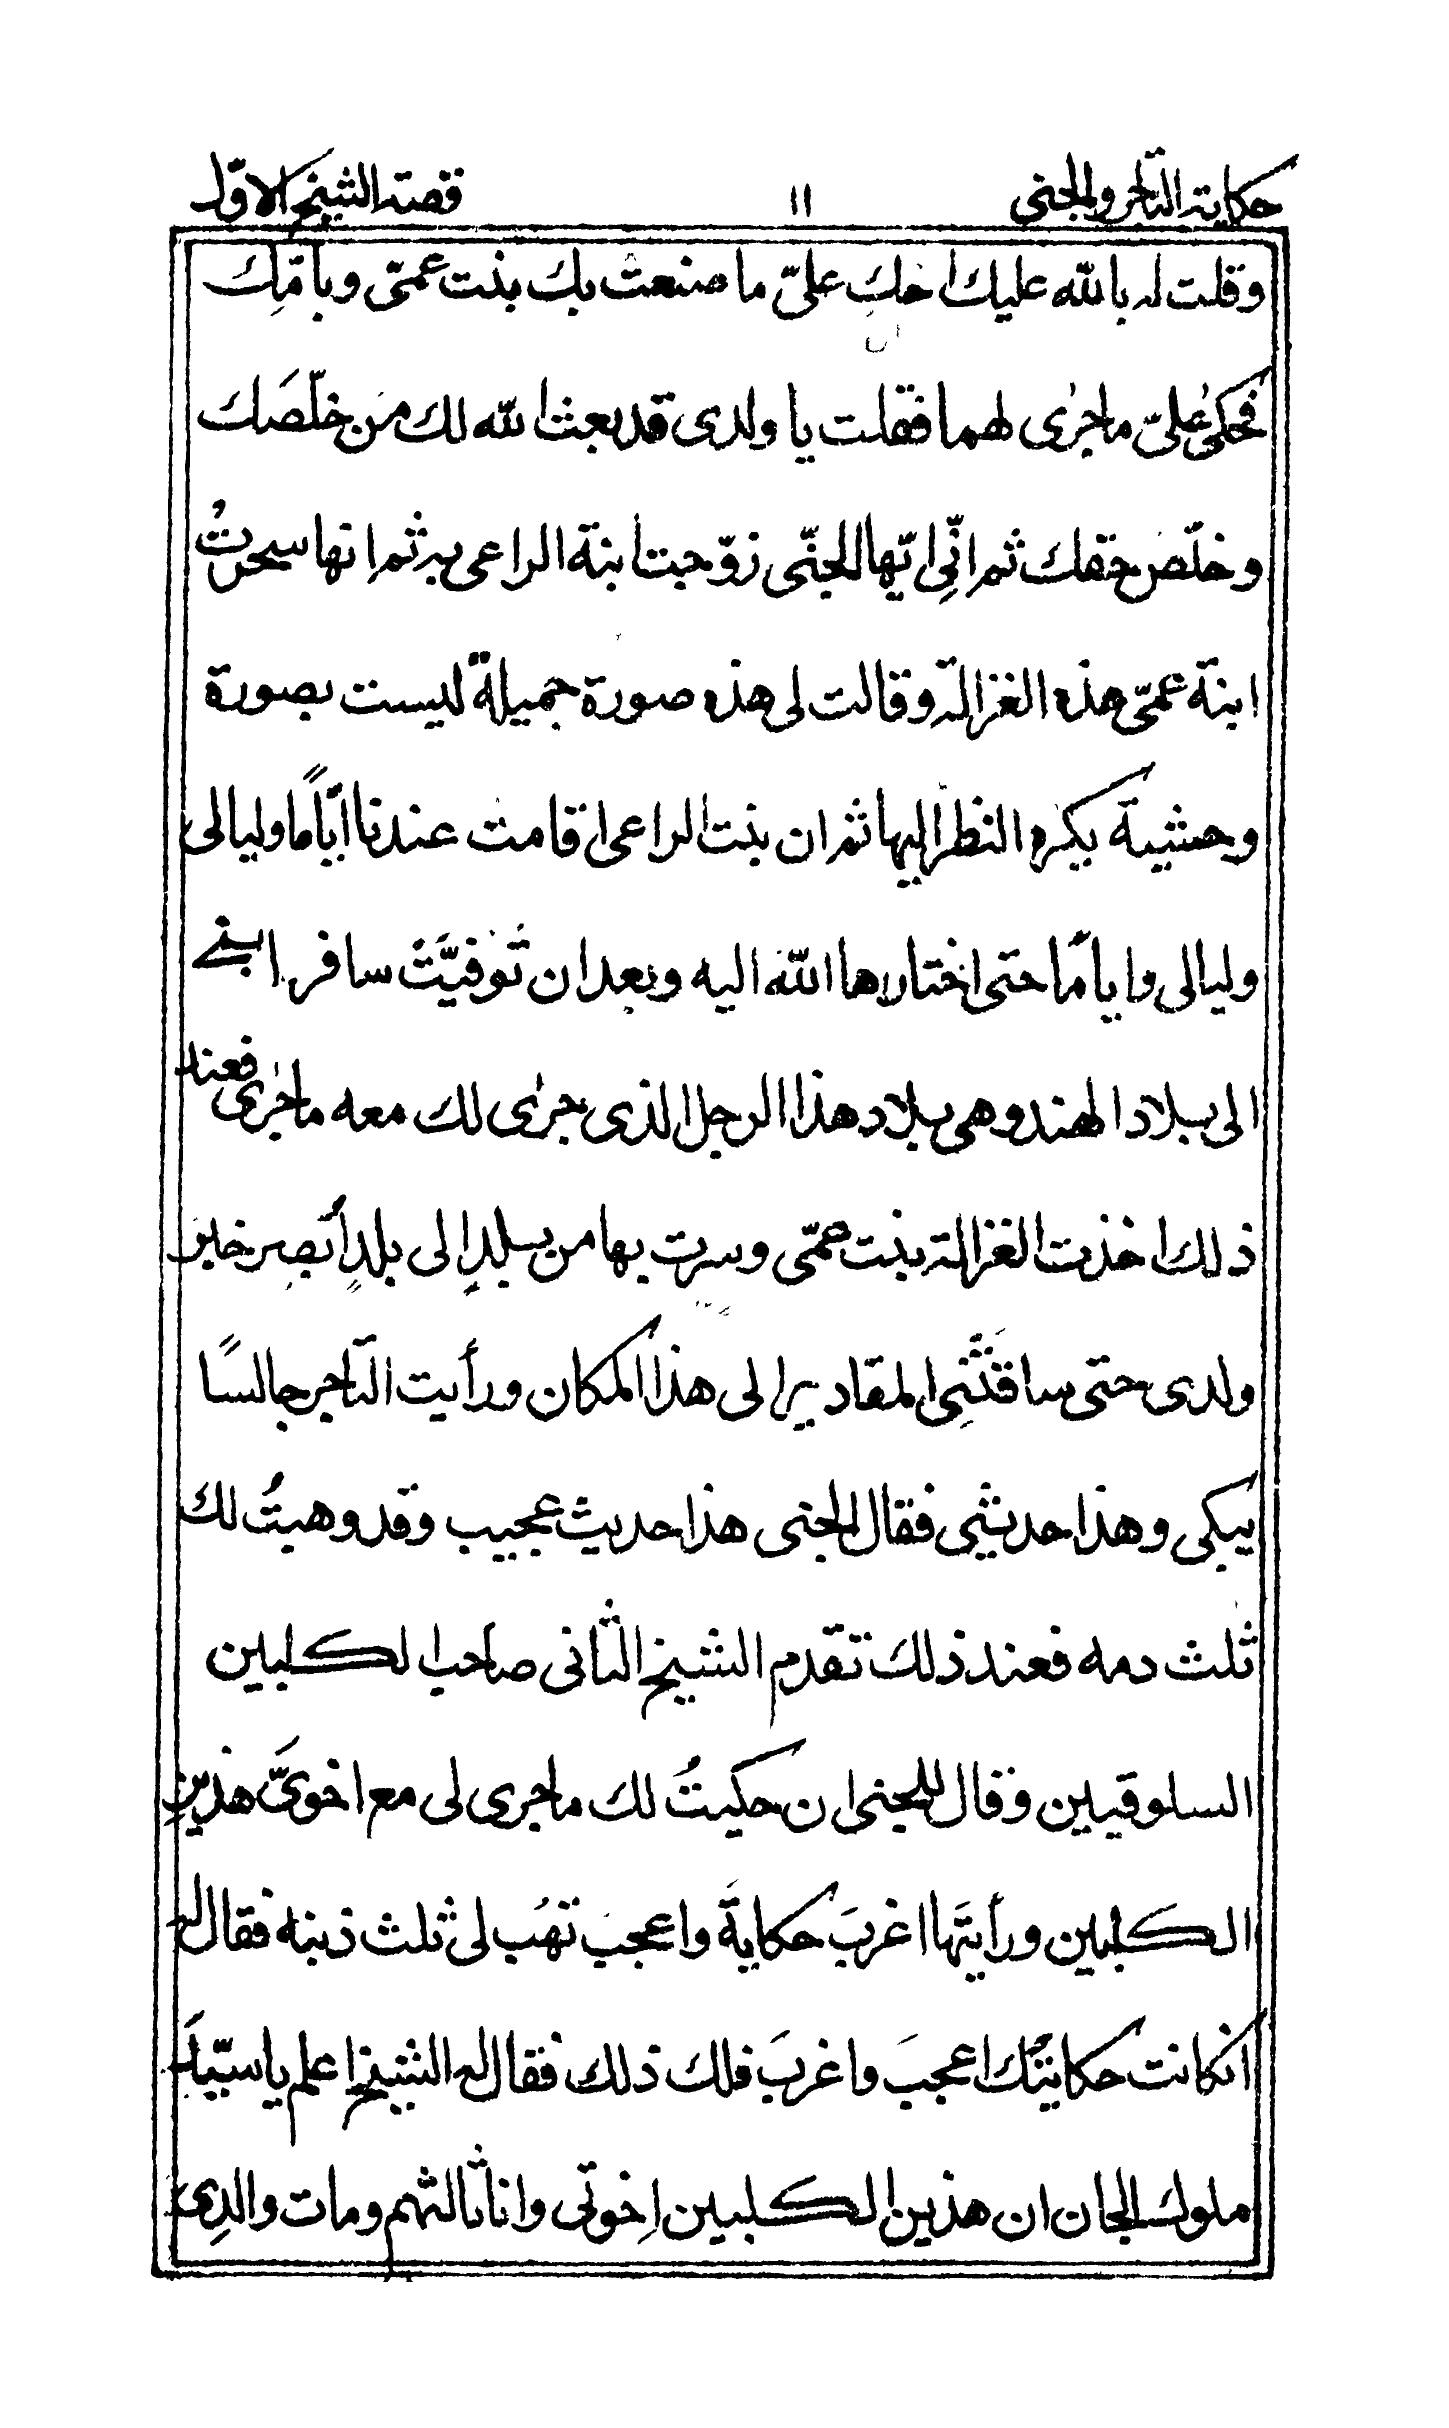 حكاية التاجر والجني ١١ قصة الشيخ الاوّل
وقلت له بالله عليك احكِ عليّ ما صنعتْ بك بنت عمّى وبامّك
فحكىٰ عليّ ماجرٰى لهما فقلت يا ولدى قد بعث الله لك من خلّصَك
وخلّص حقك ثم انّي ايّها الجنّى زوّجته ابنة الراعى به ثم انها سحرتْ
ابنة عمّى هذه الغزالة وقالت لى هذه صورة جميلةٌ ليست بصورة
وحشية يكره النظر اليها ثم ان بنت الراعى اقامت عندنا ايّاماً وليالى
وليالى واياماً حتى اختارها الله اليه وبعد ان تُوفيَّتْ سافر ابنى
الى بلاد الهند وهى بلاد هذا الرجل الذى جرٰى لك معه ماجرٰى فعند
ذلك اخذت الغزالة بنت عمّى وسرت بها من بلدٍ الى بلدٍ أُبصِر خبر
ولدى حتى ساقَتْنِى المقادير الى هذا المكان ورأيت التاجر جالسًا
يَبكى وهذا حديثى فقال الجنى هذا حديث عجيب وقد وهبتُ لك
ثلث دمه فعند ذلك تقدم الشيخ الثانى صاحب الكلبين
السلوقيين وقال للجنى ان حكيتُ لك ماجرى لى مع اخويَّ هذين
الكلبين ورأيتَها اغربَ حكايةً واعجبَ تهَب لى ثلث ذنبه فقال له
انكانت حكايتُك اعجبَ واغربَ فلك ذلك فقال له الشيخ اعلم ياسيّد
ملوك الجان ان هذين الكلبين اِخوتى وانا ثالثهم ومات والدِى